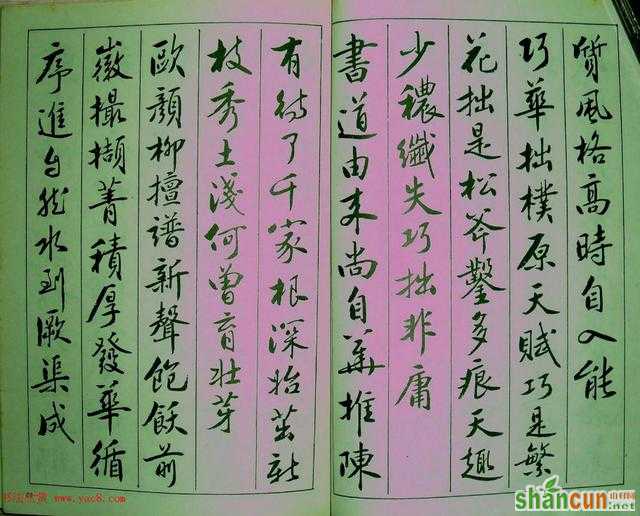 質風格高時自入能
巧華拙樸原天賦巧是繁
花拙是松斧鑿多痕天趣
少穠纖失巧拙非庸
書道由来尚自華推陳
有待了千家根深始茁新
枝秀土淺何曾育壯芽
歐顏柳擅譜新聲飽飫前
徽撮擷菁積厚發華循
序進自然水到厥渠成
www.yac8.com
shancun
山村网
.net